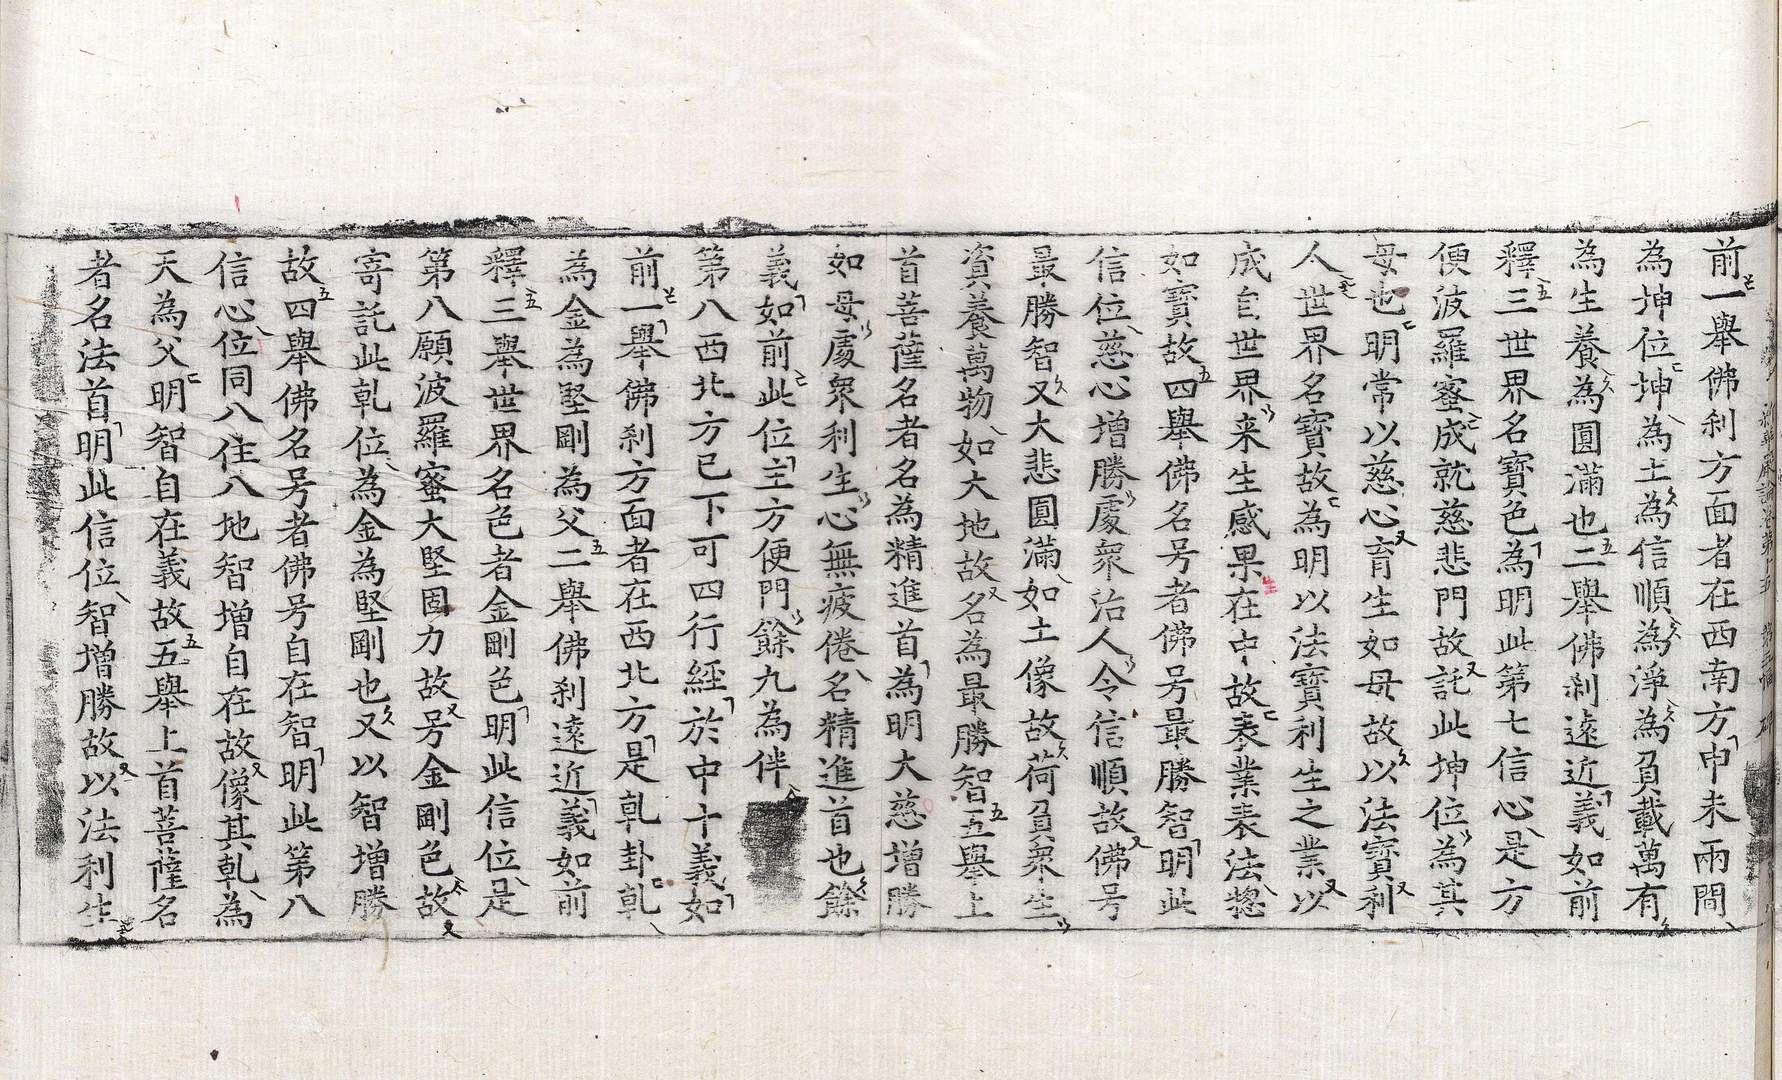 前一舉佛刹方面者在西南方申未兩間
為坤位坤為土為信順為淨為負載萬有
為生養為圓滿也二舉佛刹遠近義如前
釋三世界名寶色為明此第七信心是方
便波羅蜜成就慈悲門故託此坤位為其
母也明常以慈心育生如母故以法寶利
人世界名寶故為明以法寶利生之業以
成自世界来生感果在中故表業表法惣
如寶故四舉佛名号者佛号最勝智明此
信位慈心增勝處衆治人令信順故佛号
最勝智又大悲圓滿如土像故荷負衆生
資養萬物如大地故名為最勝智五舉上
首菩薩名者名為精進首為明大慈增勝
如母處衆利生心無疲倦名精進首也餘
義如前此位主方便門餘九為伴
第八西北方已下可四行經於中十義如
前一舉佛刹方面者在西北方是乹卦乹
為金為堅剛為父二舉佛刹遠近義如前
釋三舉世界名色者金剛色明此信位是
第八願波羅蜜大堅固力故号金剛色故
寄託此乹位為金為堅剛也又以智增勝
故四舉佛名号者佛号自在智明此第八
信心位同八住八地智增自在故像其乹為
天為父明智自在義故五舉上首菩薩名
者名法首明此信位智增勝故以法利生